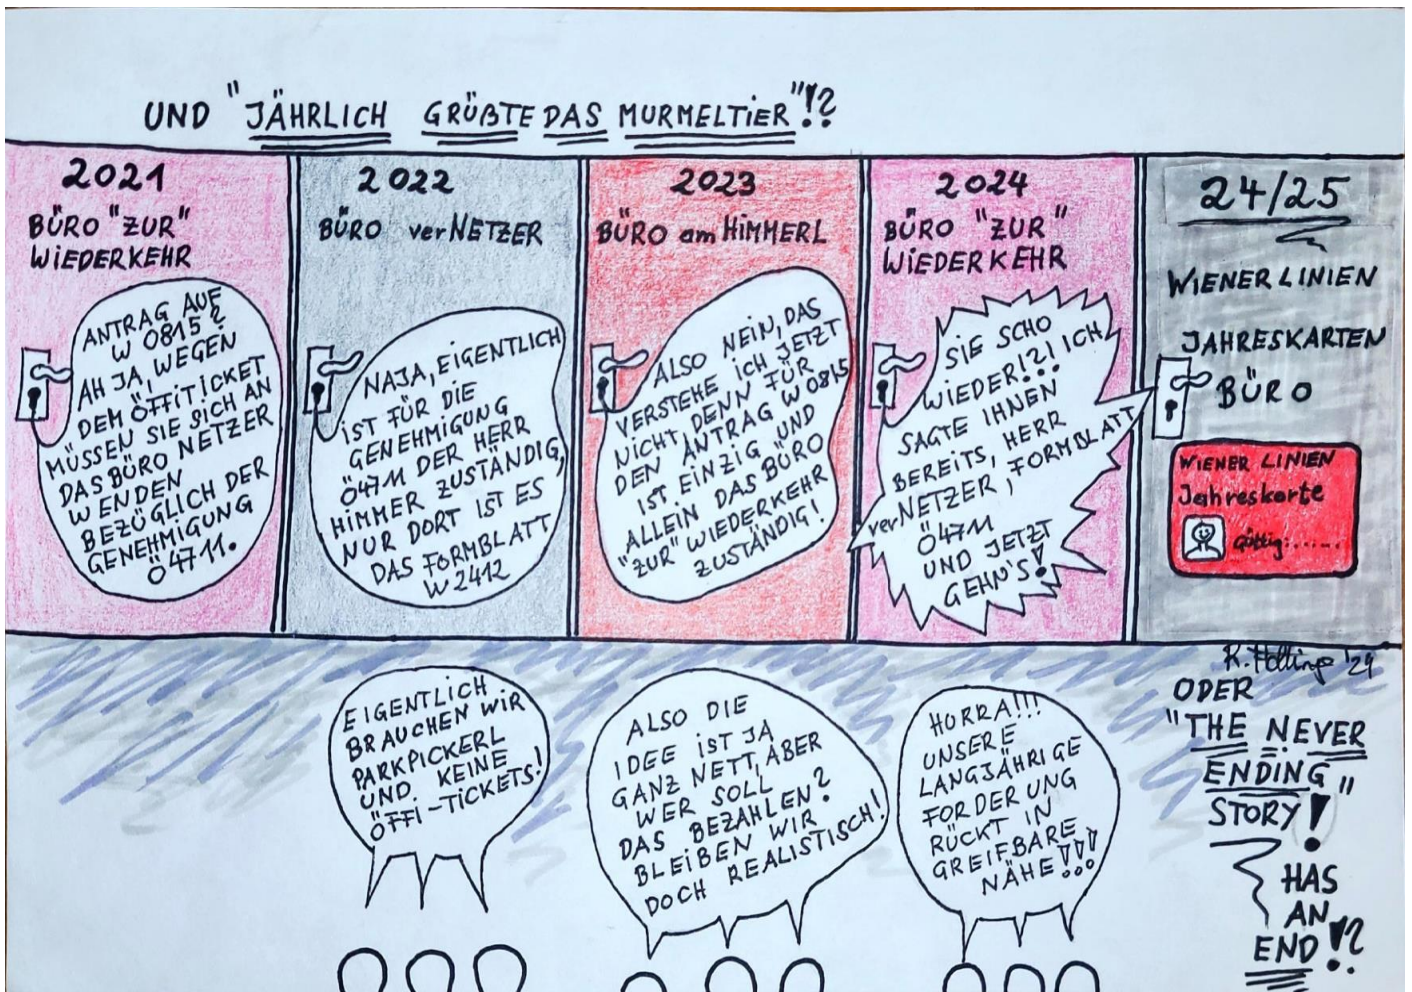 UND "JÄHRLICH GRÜßTE DAS MURMELTIER"!?
2021
BÜRO "ZUR"
WIEDERKEHR
ANTRAG AUF
W 0815?
AH JA, WEGEN
DEM ÖFFITICKET
MÜSSEN SIE SICH AN
DAS BÜRO NETZER
WENDEN
BEZÜGLICH DER
GENEHMIGUNG
Ö4711.
2022
BÜRO verNETZER
NAJA, EIGENTLICH
IST FÜR DIE
GENEHMIGUNG
Ö4711 DER HERR
HIMMER ZUSTÄNDIG,
NUR DORT IST ES
DAS FORMBLATT
W2412
2023
BÜRO am HIMMERL
ALSO NEIN, DAS
VERSTEHE ICH JETZT
NICHT, DENN FÜR
DEN ANTRAG W0815
IST EINZIG UND
ALLEIN DAS BÜRO
"ZUR" WIEDERKEHR
ZUSTÄNDIG!
2024
BÜRO "ZUR"
WIEDERKEHR
SIE SCHO
WIEDER!?! ICH
SAGTE IHNEN
BEREITS, HERR
verNETZER, FORMBLATT
Ö4711
UND JETZT
GEHN'S!
24/25
WIENER LINIEN
JAHRESKARTEN
BÜRO
WIENER LINIEN
Jahreskarte
Gültig:......
EIGENTLICH
BRAUCHEN WIR
PARKPICKERL
UND KEINE
ÖFFI-TICKETS!
ALSO DIE
IDEE IST JA
GANZ NETT, ABER
WER SOLL
DAS BEZAHLEN?
BLEIBEN WIR
DOCH REALISTISCH!
HURRA!!!
UNSERE
LANGJÄHRIGE
FORDERUNG
RÜCKT IN
GREIFBARE
NÄHE!!!
K. '24
ODER
"THE NEVER
ENDING"
STORY!
HAS
AN
END!?